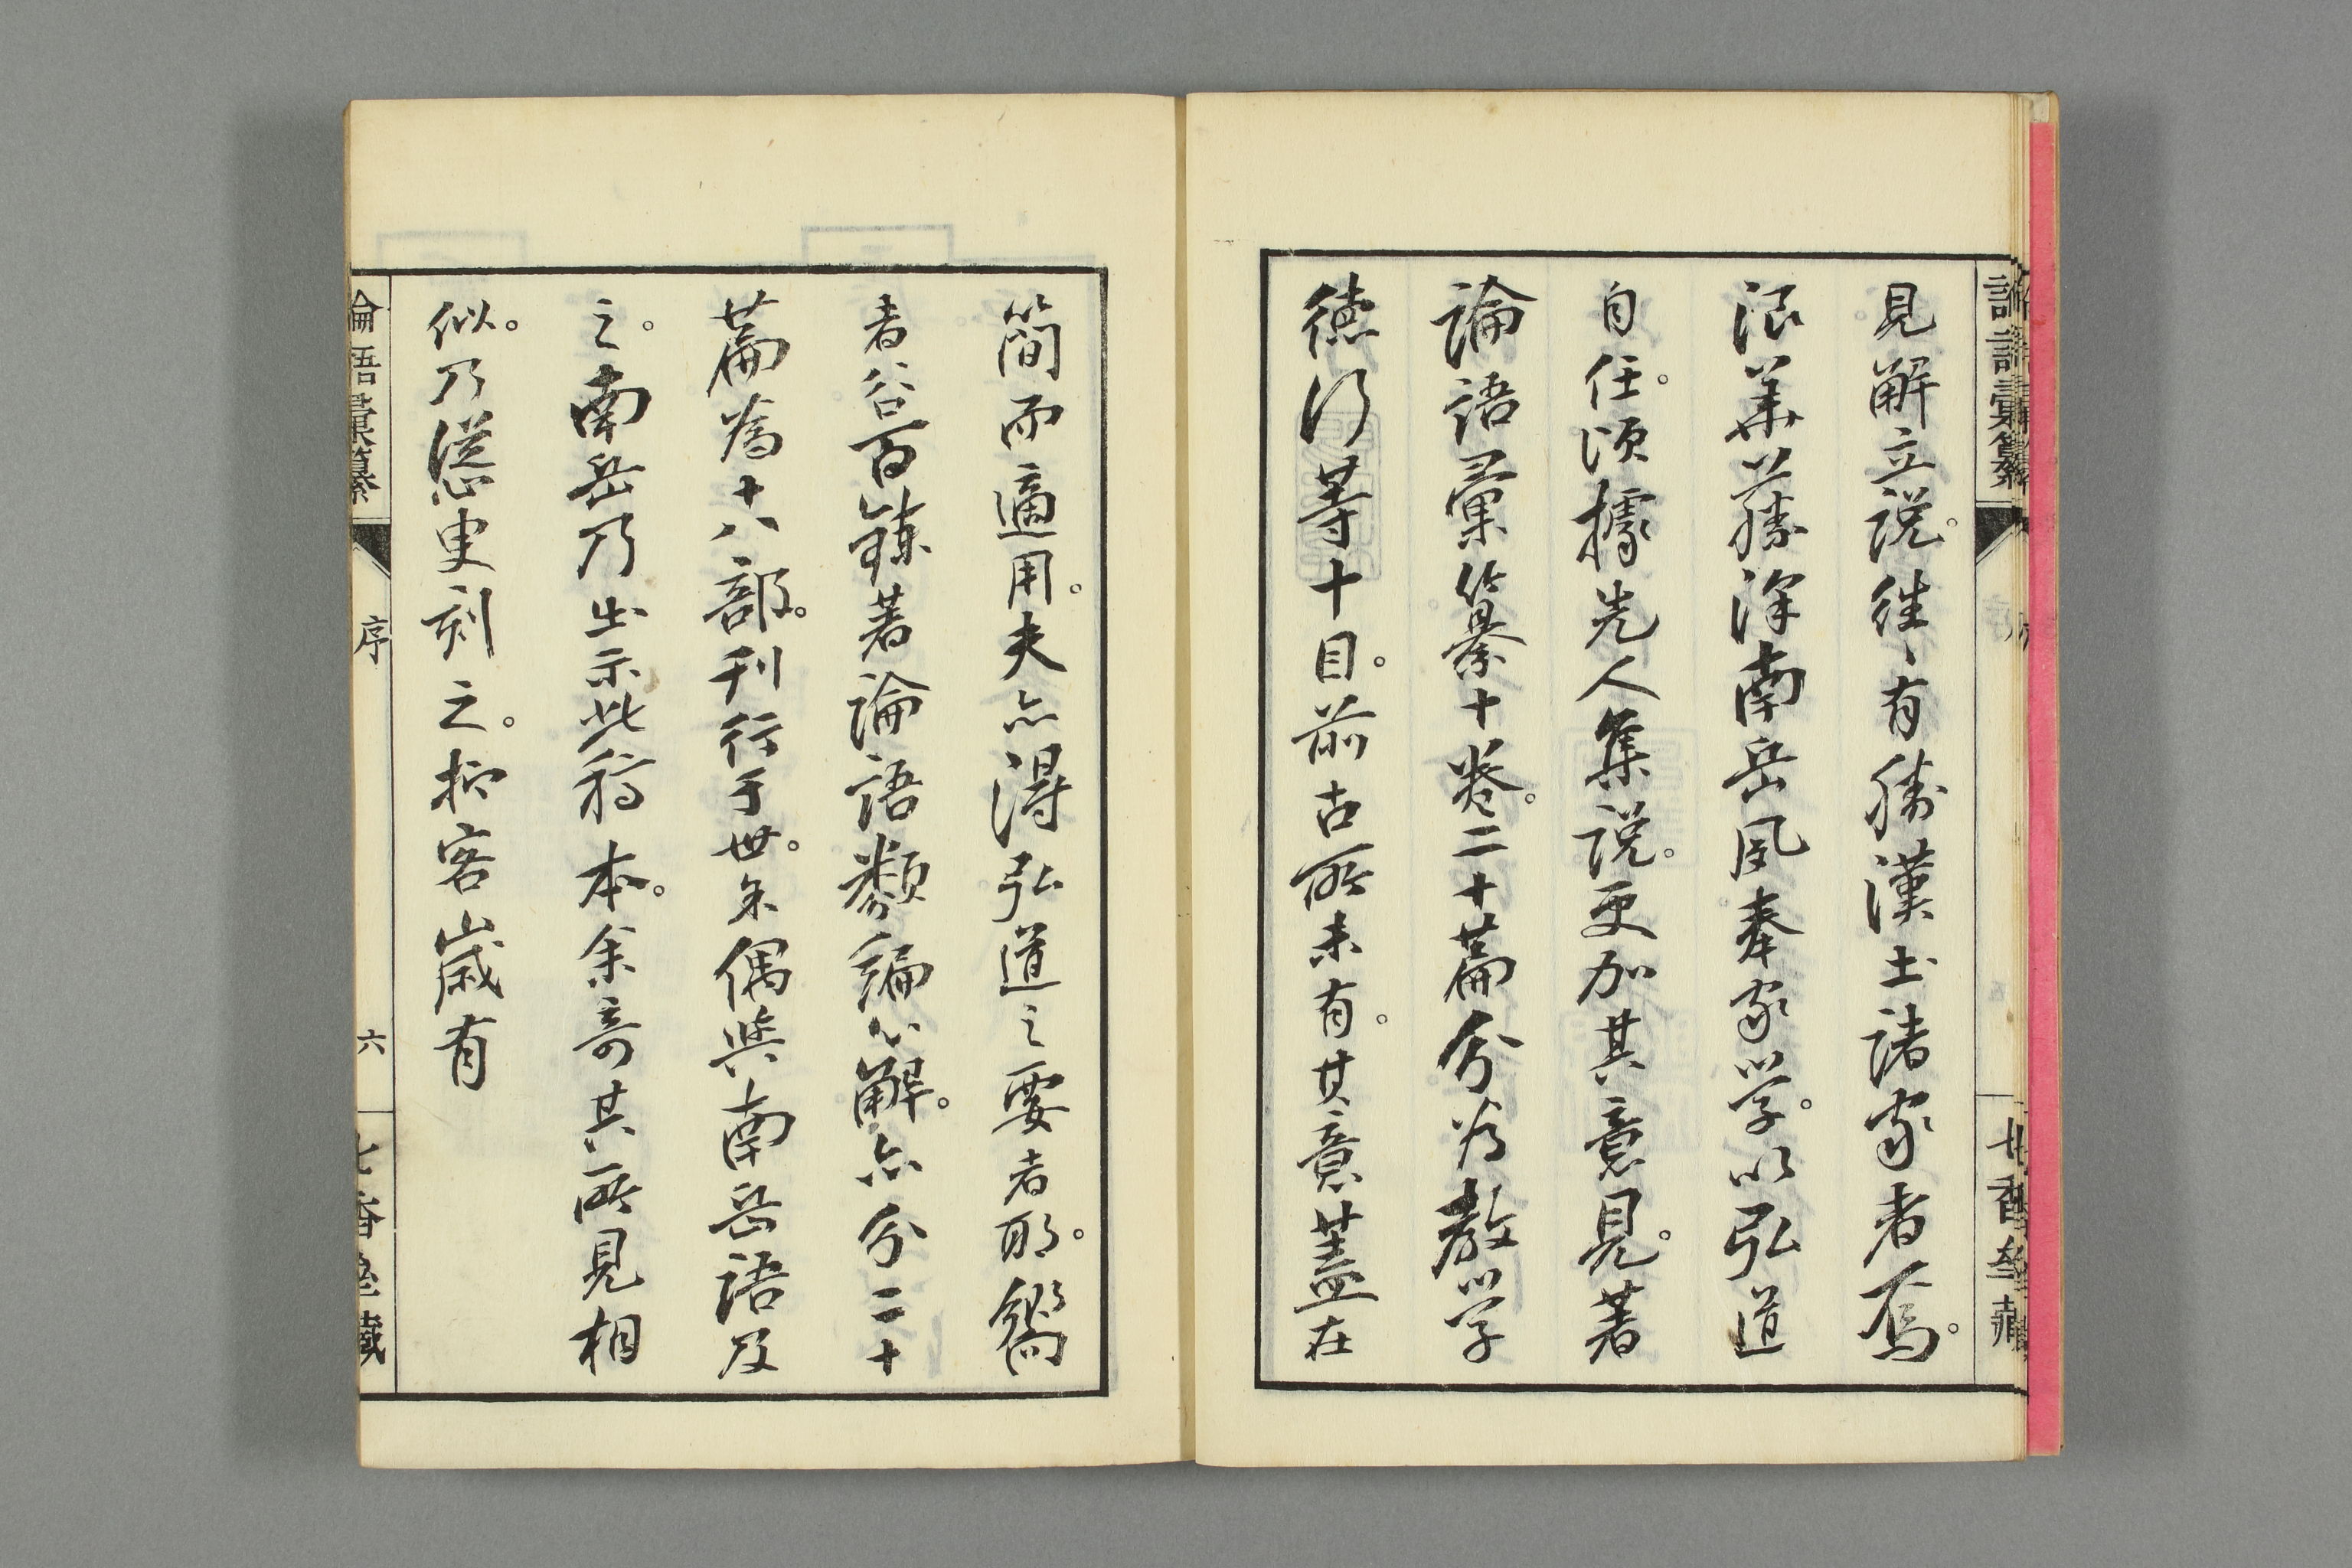 見解立説。往々有勝漢土諸家者焉。
浪華藤澤南岳夙奉家学。以弘道
自任。頃據先人集説。更加其意見。著
論語彙纂十卷。二十篇分為教学
徳行等十目。前古所未有。其意蓋在
簡而適用。夫亦得弘道之要者耶。嚮
者谷百錬著論語類編心解。亦分二十
篇為十八部。刊行于世。余偶與南岳語及
之。南岳乃出示此稿本。余奇其所見相
似。乃慫臾刻之。抑客歳有
論語彙纂
序
六
七香齋藏